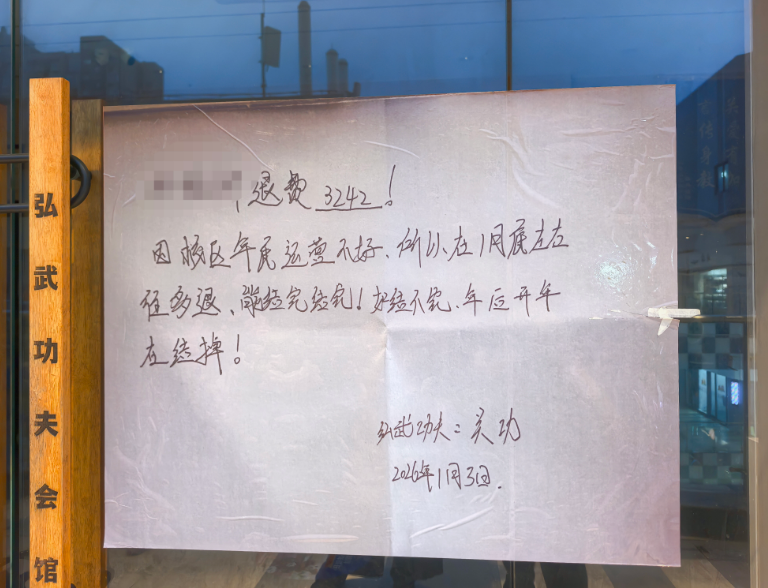 弘武功夫会馆
退费 3242！
因校区年底运营不好、所以在1月底左右
往多退、能结完结完！如结不完、年后开年
在结掉！
弘武功夫：吴功
2026年1月3日.